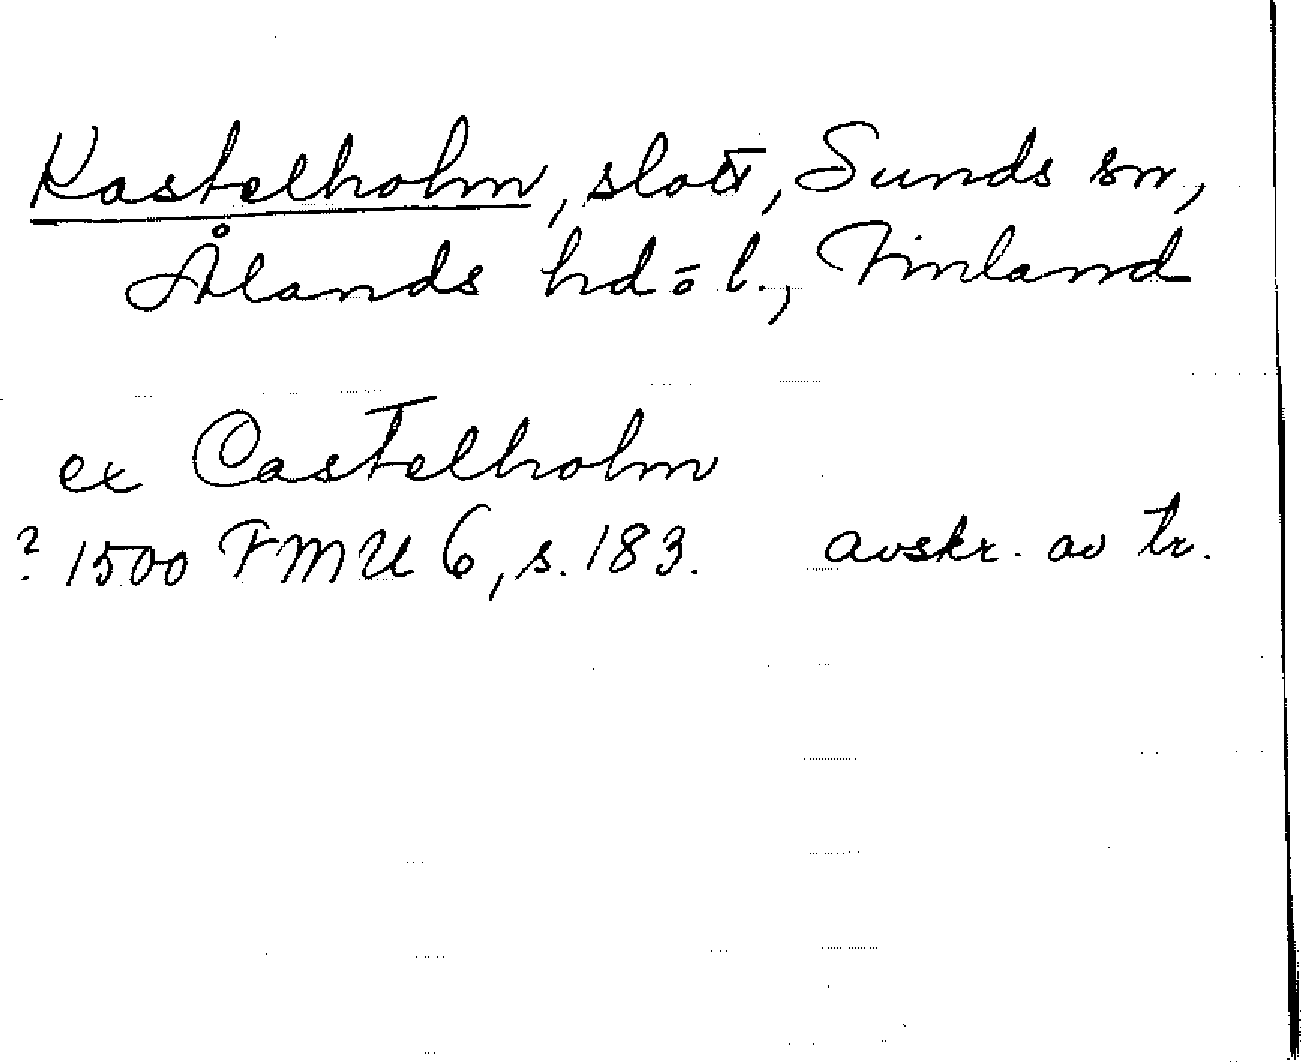 Kastelholm, slott, Sunds sn,
Ålands hd=l., Finland
ex Castelholm
? 1500 FMU 6, s. 183. avskr. av tr.